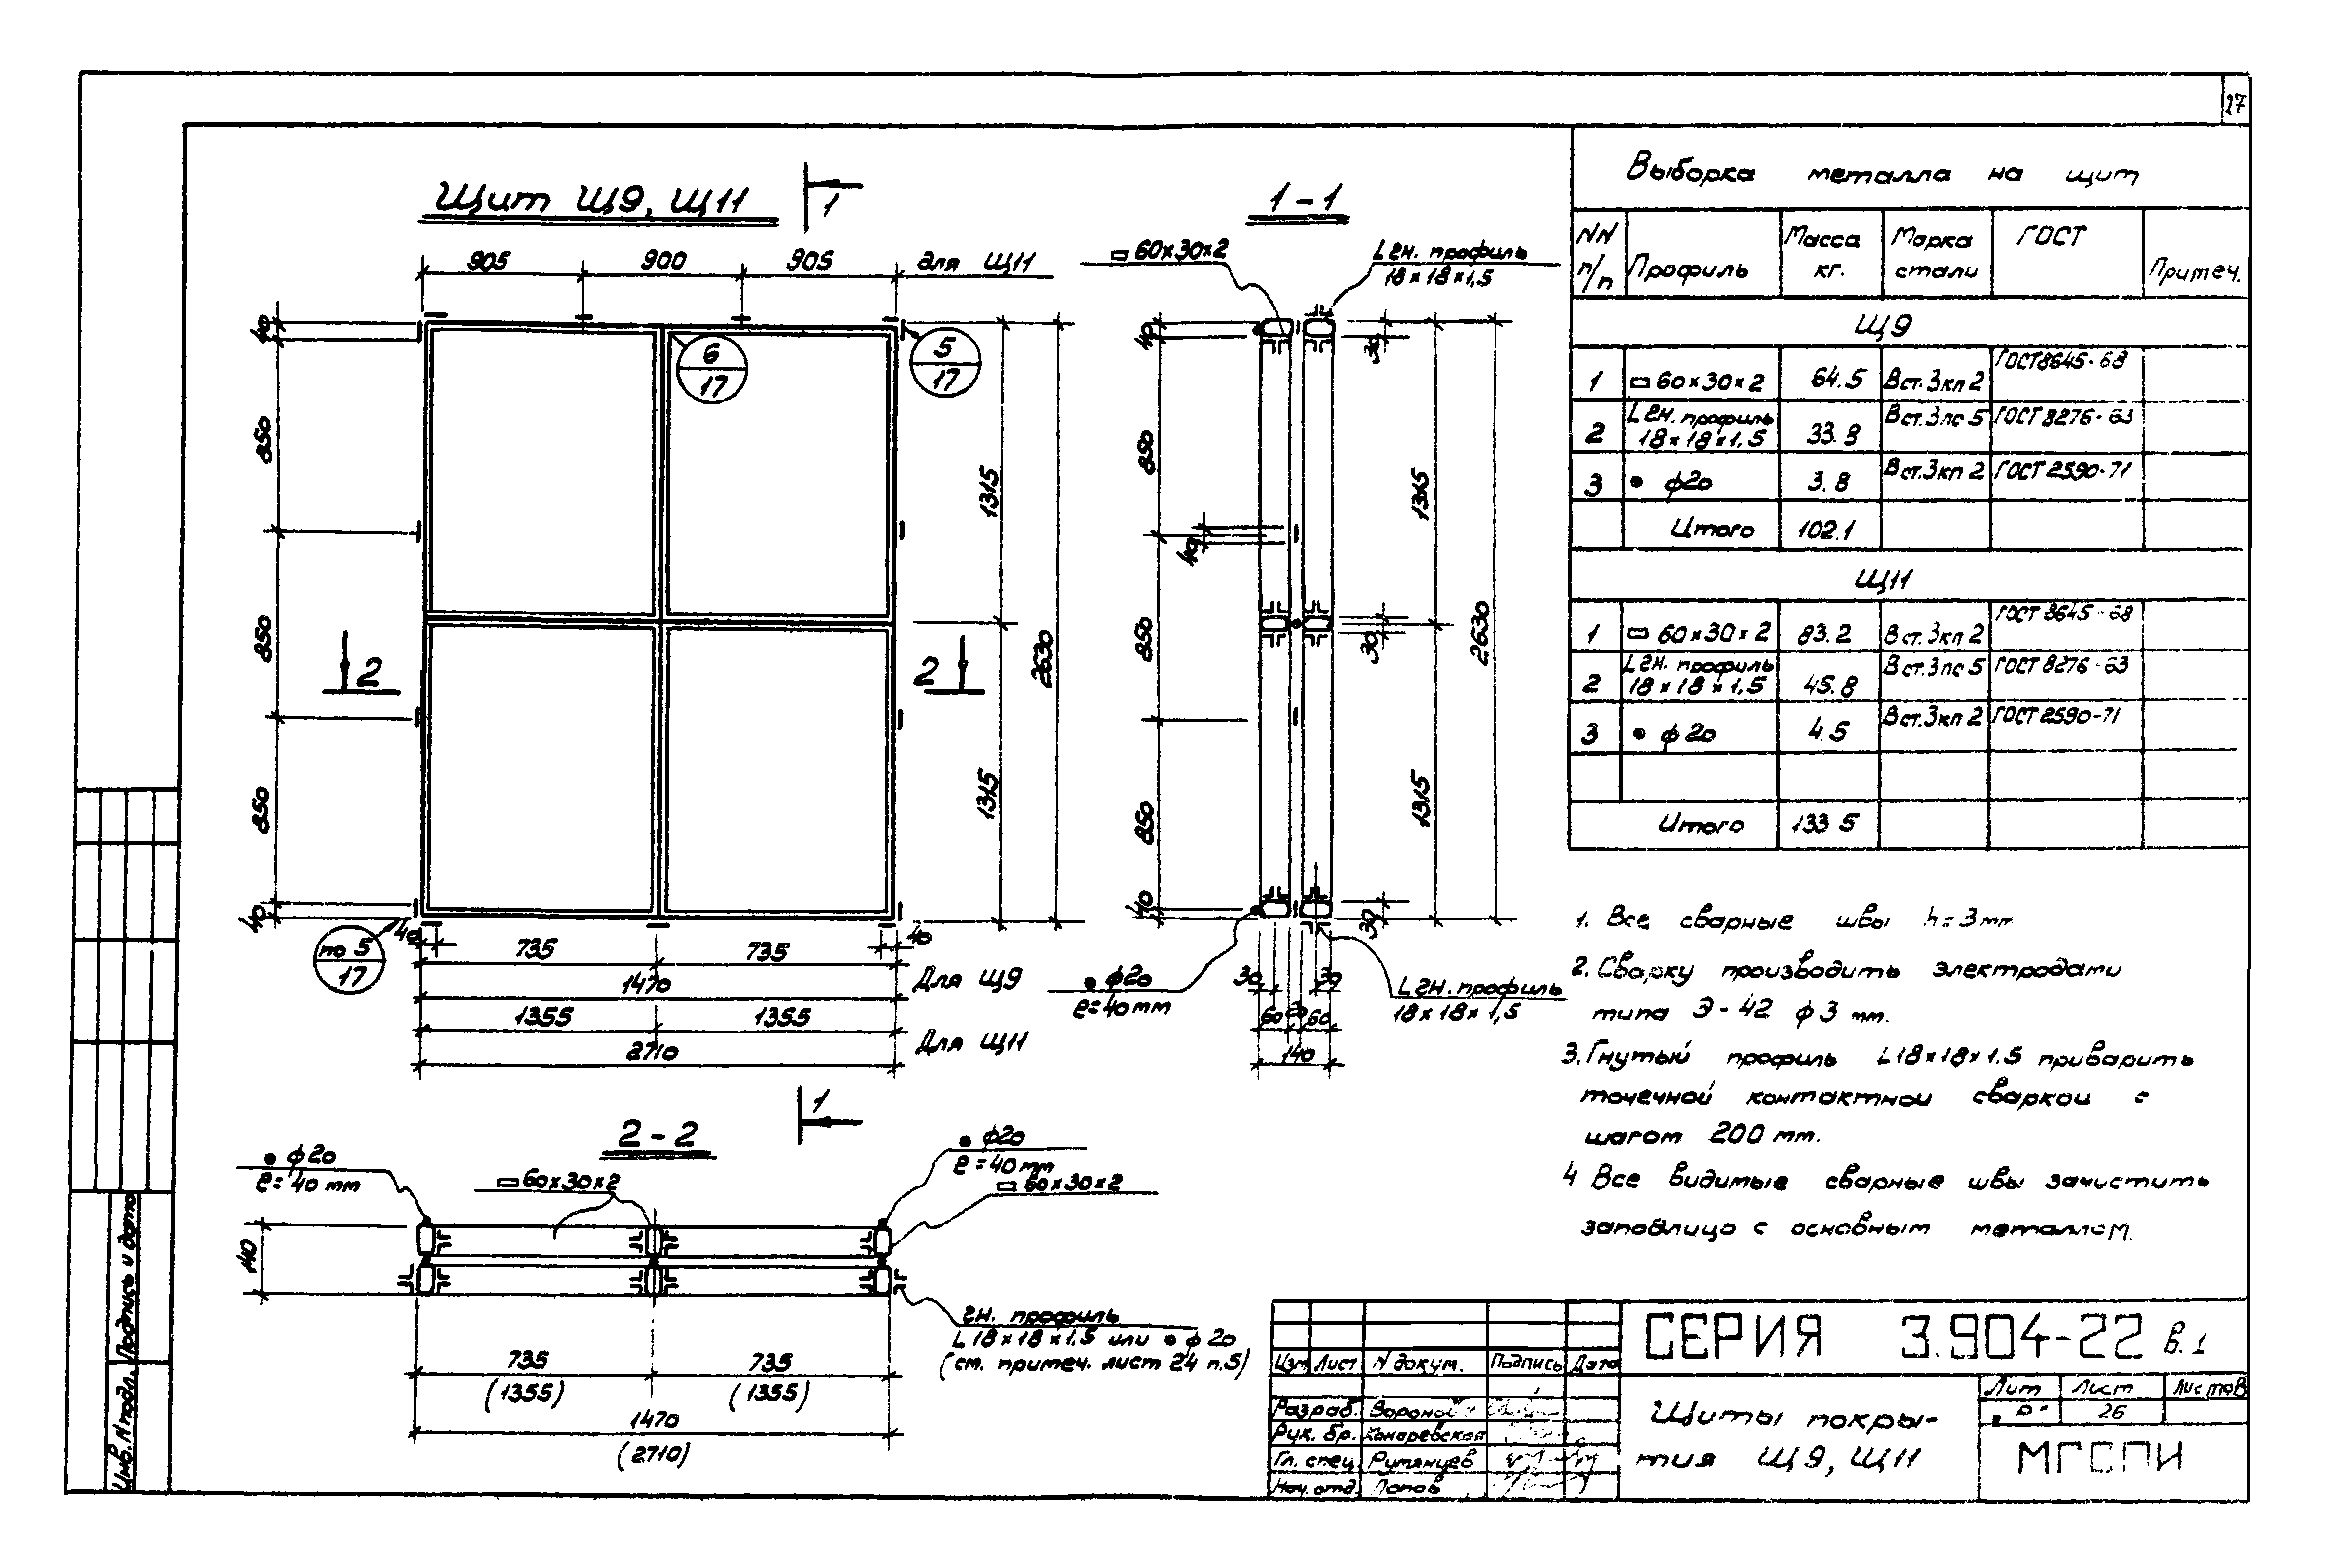 27
Щит Щ9, Щ11
1
905 900 905 для Щ11
40
850
850
850
40
6
17
5
17
1315
1315
2630
2 2
по 5
17
40 735 735 40
1470 Для Щ9
1355 1355
2710 Для Щ11
1
1-1
▭ 60×30×2
L гн. профиль
18×18×1,5
40
850
40
850
850
40
30
30
30
1315
1315
2630
● ф20
ℓ=40мм
30 30
60 20 60
140
L гн. профиль
18×18×1,5
2-2
● ф20
ℓ=40 мм
▭60×30×2
● ф20
ℓ=40 мм
▭ 60×30×2
140
гн. профиль
L 18×18×1.5 или ● ф20
(см. примеч. лист 24 п.5)
735 735
(1355) (1355)
1470
(2710)
Выборка металла на щит
NN п/п Профиль Масса кг. Марка стали ГОСТ Примеч.
Щ9
1 ▭ 60×30×2 64.5 Вст.3кп2 ГОСТ8645-68
2 L гн. профиль 18×18×1,5 33.8 Вст.3пс5 ГОСТ 8276-63
3 ● ф20 3.8 Вст.3кп2 ГОСТ 2590-71
Итого 102.1
Щ11
1 ▭ 60×30×2 83.2 Вст.3кп2 ГОСТ 8645-68
2 L гн. профиль 18×18×1,5 45.8 Вст.3пс5 ГОСТ 8276-63
3 ● ф20 4.5 Вст.3кп2 ГОСТ 2590-71
Итого 133 5
1. Все сварные швы h=3мм
2. Сварку производить электродами
типа Э-42 ф3 мм.
3. Гнутый профиль L18×18×1.5 приварить
точечной контактной сваркой с
шагом 200 мм.
4 Все видимые сварные швы зачистить
заподлицо с основным металлом.
Изм Лист N докум. Подпись Дата
Разраб.
Рук. бр. Комаревская
Гл. спец. Румянцев
Нач. отд. Попов
СЕРИЯ 3.904-22 В.1
Щиты покры-
тия Щ9, Щ11
Лит Лист Листов
"Р" 26
МГСПИ
Инв.N подл. Подпись и дата